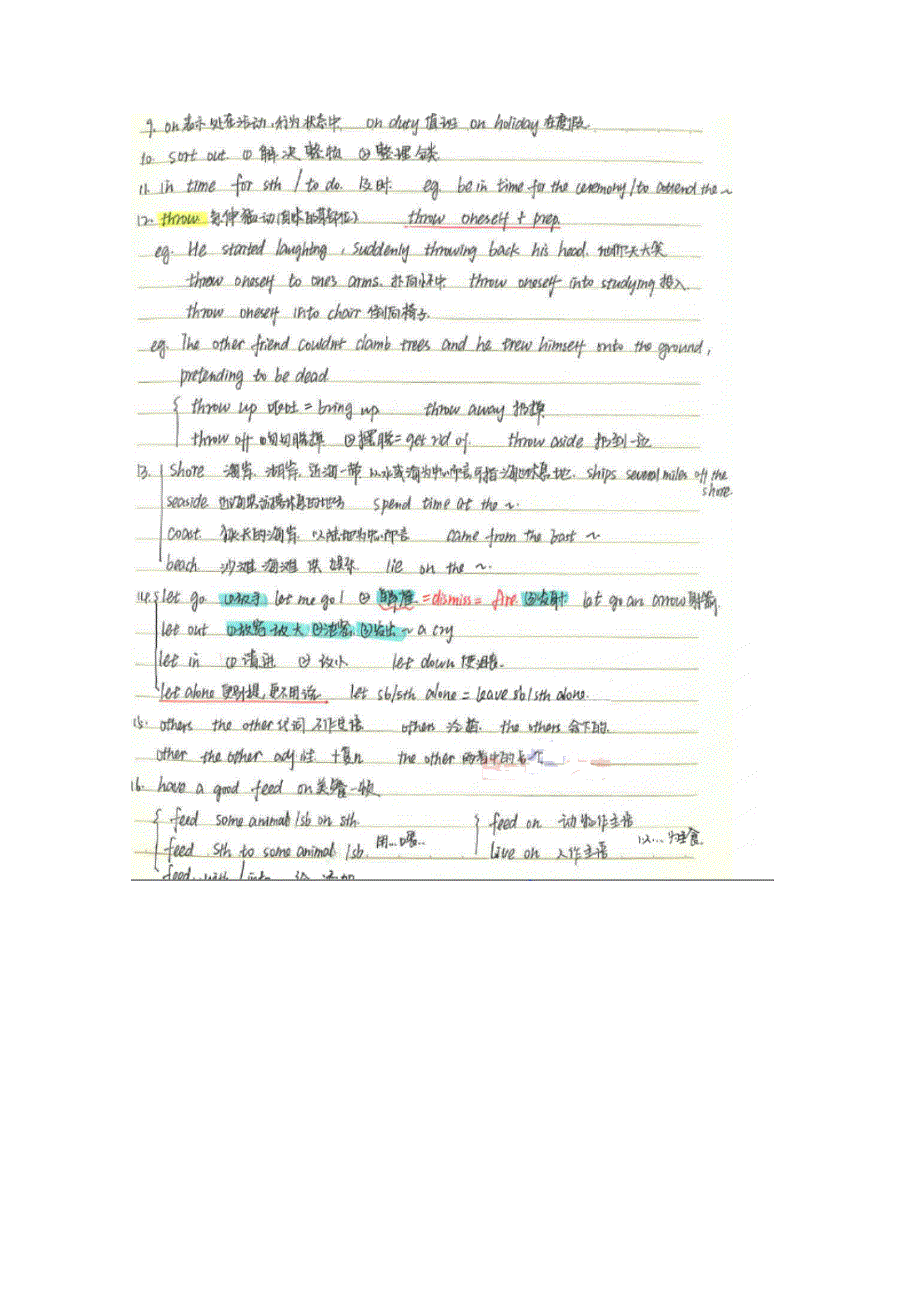 9. on 表示处在活动、行为状态中 on duty 值班 on holiday 在度假
10. sort out ① 解决 整顿 ② 整理 分类
11. in time for sth / to do. 及时 eg. be in time for the ceremony / to attend the ~
12. throw 急伸 猛动(身体的某部位) throw oneself + prep
eg. He started laughing, suddenly throwing back his head. 他仰天大笑
throw oneself to one's arms. 扑向怀中 throw oneself into studying 投入
throw oneself into chair 倒向椅子.
eg. The other friend couldn't clamb trees and he trew himself onto the ground,
pretending to be dead
throw up 呕吐 = bring up throw away 扔掉
throw off ① 匆匆脱掉 ② 摆脱 = get rid of. throw aside 扔到一边
13. shore 海岸、湖岸、近海一带 以水或海为中心而言 可指海边休息地. ships several miles off the shore.
seaside spend time at the ~.
coast 狭长的海岸. 以陆地为中心而言 came from the East ~
beach 沙滩 海滩 供娱乐 lie on the ~.
14. let go ①放手 let me go! ② 解雇 = dismiss = fire ③发射 let go an arrow 射箭
let out ①放宽 放大 ②泄密 ③发出 ~ a cry
let in ① 请进 ② 改小 let down 使沮丧.
let alone 更别提, 更不用说 let sb/sth alone = leave sb/sth alone.
15. others the other 代词 不作定语 others 泛指 the others 余下的.
other the other adj. 性 +复n the other 两者中的另一个
16. have a good feed on 美餐一顿
feed some animal /sb on sth. feed on 动物作主语
feed sth to some animal /sb 用...喂... live on 人作主语 以...为主食
feed with / into 给 添加